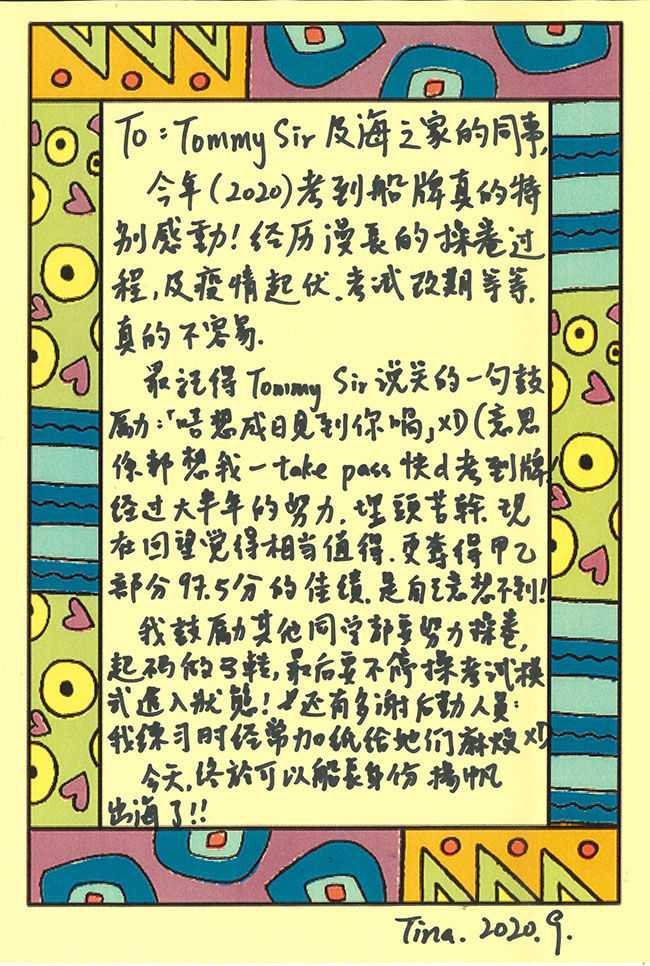 To：Tommy Sir 及海之家的同事,
今年(2020)考到船牌真的特
别感動！经历漫長的操卷过
程,及疫情起伏.考试改期等等.
真的不容易.
最記得Tommy Sir说笑的一句鼓
励：「唔想成日見到你喎」XD(意思
你都想我一take pass快d考到牌
经过大半年的努力,埋頭苦幹.现
在回望觉得相当值得.更奪得甲乙
部分97.5分的佳績,是自己意想不到!
我鼓励其他同学都要努力操卷,
起码的 ,最后要不停操考试模
式進入狀態！还有多谢后勤人員：
我练习时经常加纸给她们麻烦XD
今天,终於可以船長身份揚帆
出海了!!
Tina. 2020.9.